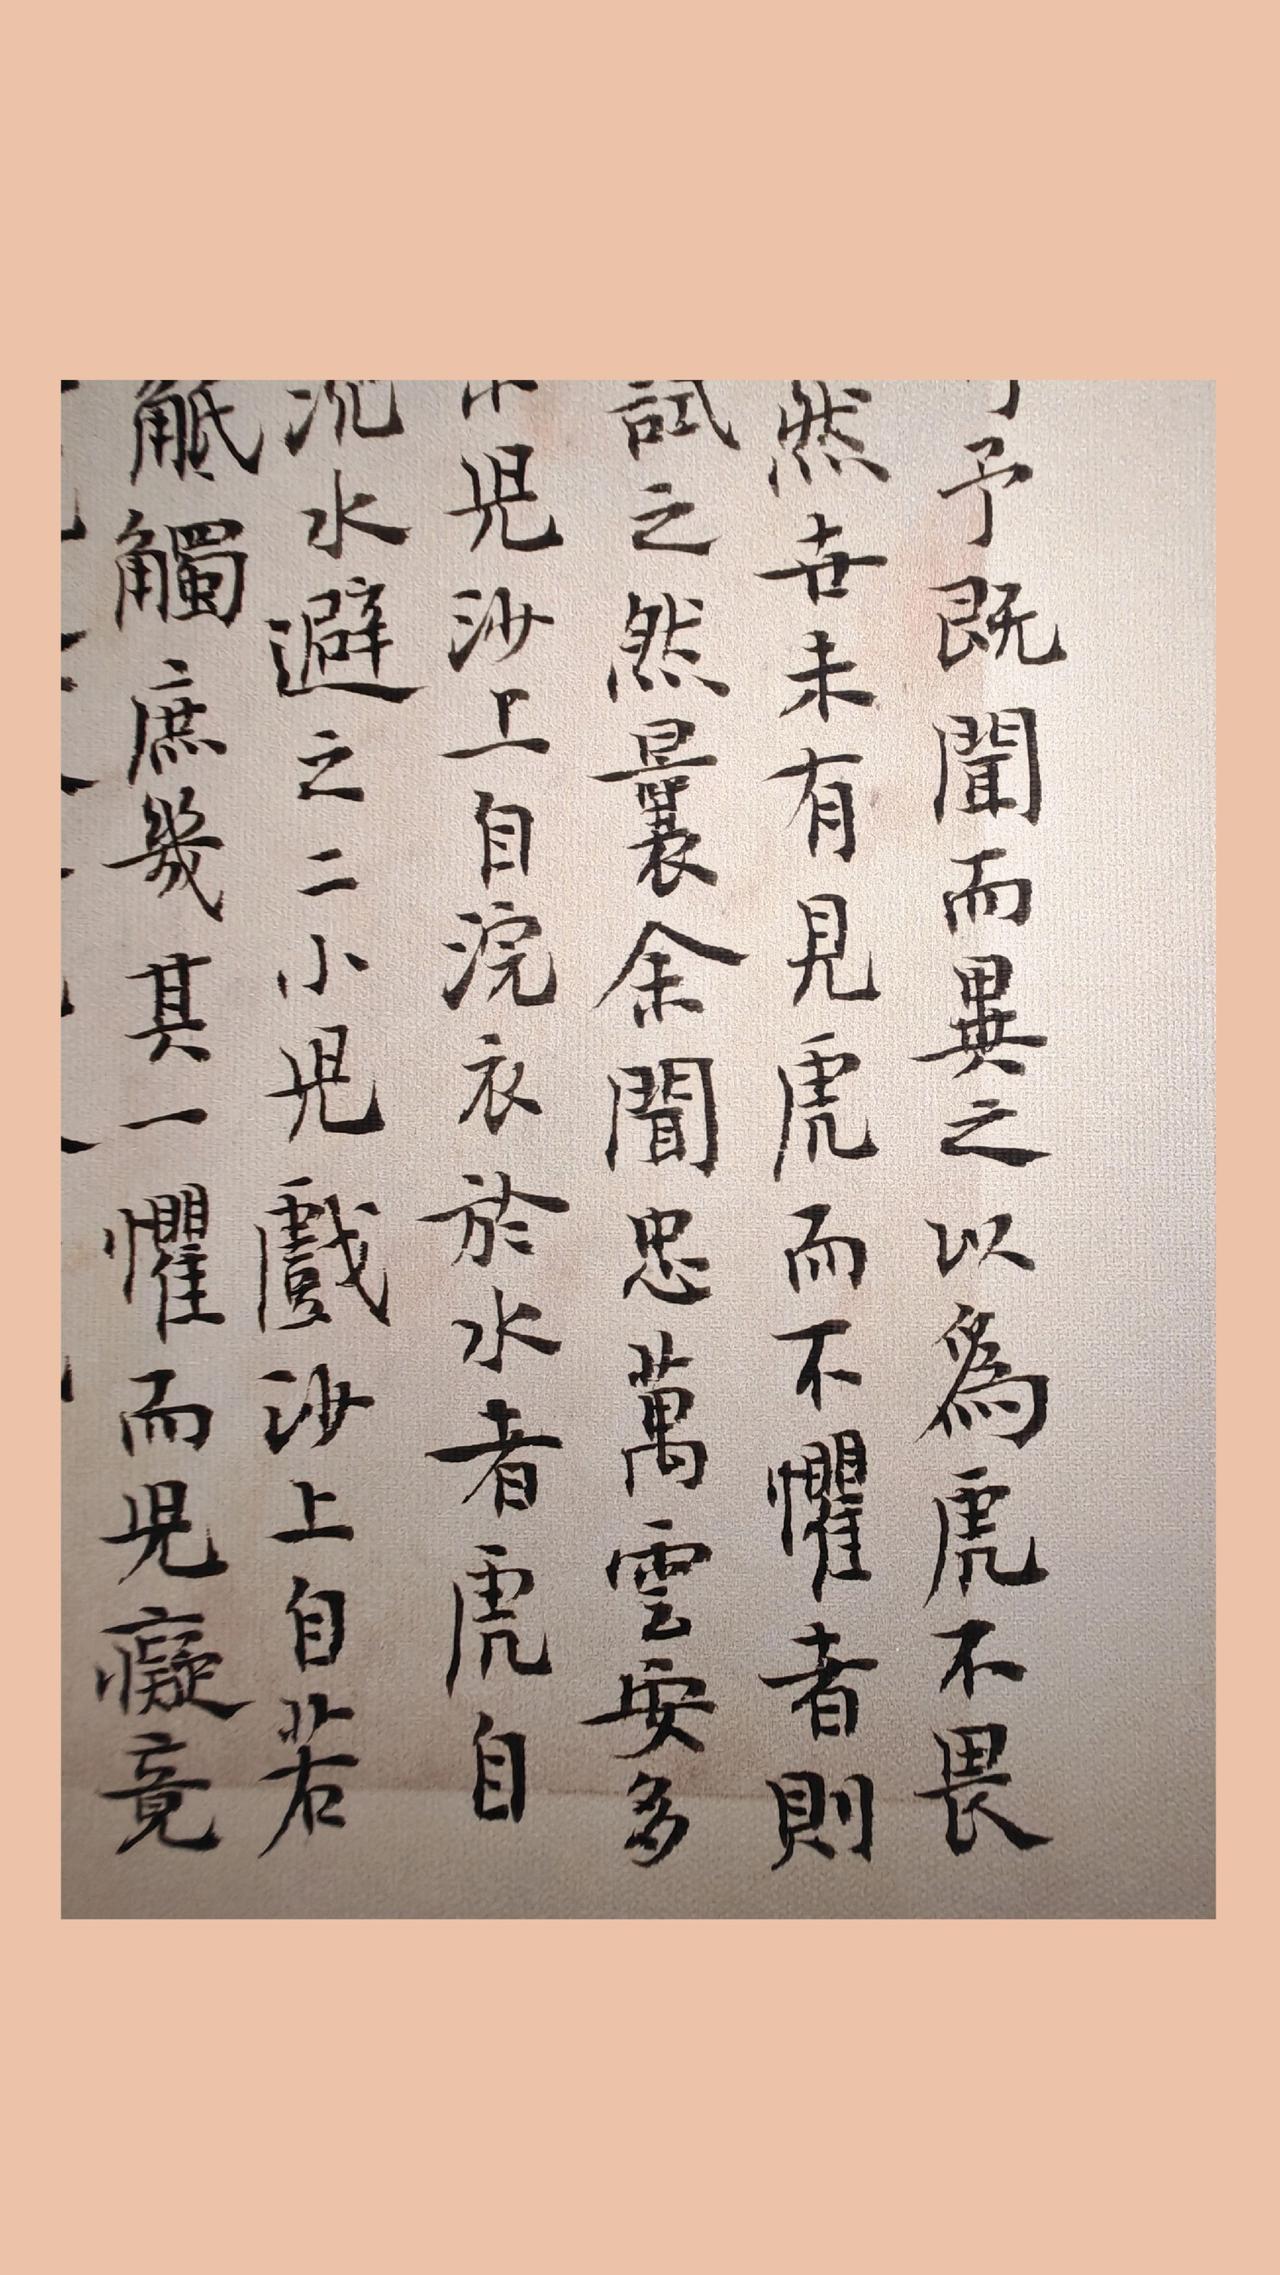 予既聞而異之以為虎不畏
然世未有見虎而不懼者則
試之然曩余聞忠萬雲安多
児沙上自浣衣於水者虎自
沉水避之二小児戲沙上自若
觝觸庶幾其一懼而児癡竟